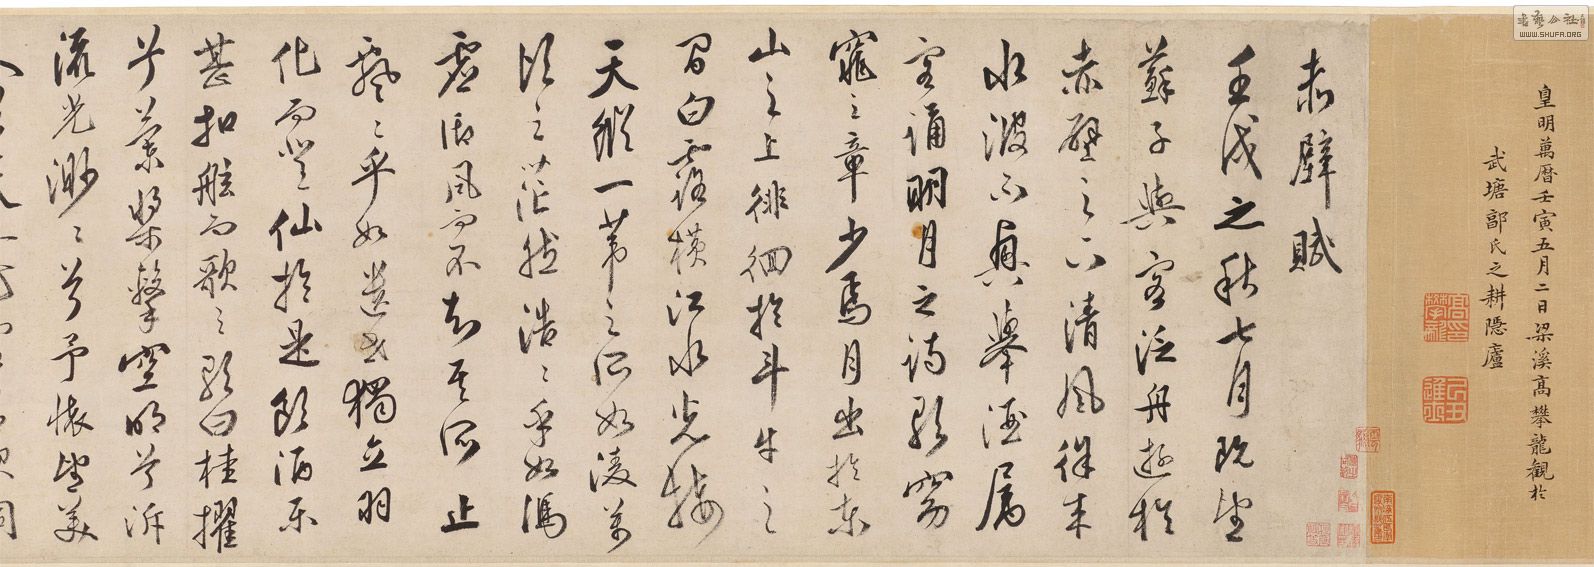 書藝公社
WWW.SHUFA.ORG
皇明萬曆壬寅五月二日梁溪高攀龍觀於
武塘氏之耕隱廬
高攀龍印
己丑進士
赤壁賦
壬戌之秋七月既望
蘇子與客泛舟遊於
赤壁之下清風徐来
水波不興舉酒屬
客誦明月之詩歌窈
窕之章少焉月出於東
山之上徘徊於斗牛之
間白露橫江水光接
天縱一葦之所如凌萬
頃之茫然浩々乎如馮
虛御風而不知其所止
飄々乎如遺世獨立羽
化而登仙於是飲酒樂
甚扣舷而歌之歌曰桂櫂
兮蘭槳擊空明兮泝
流光渺々兮予懷望美